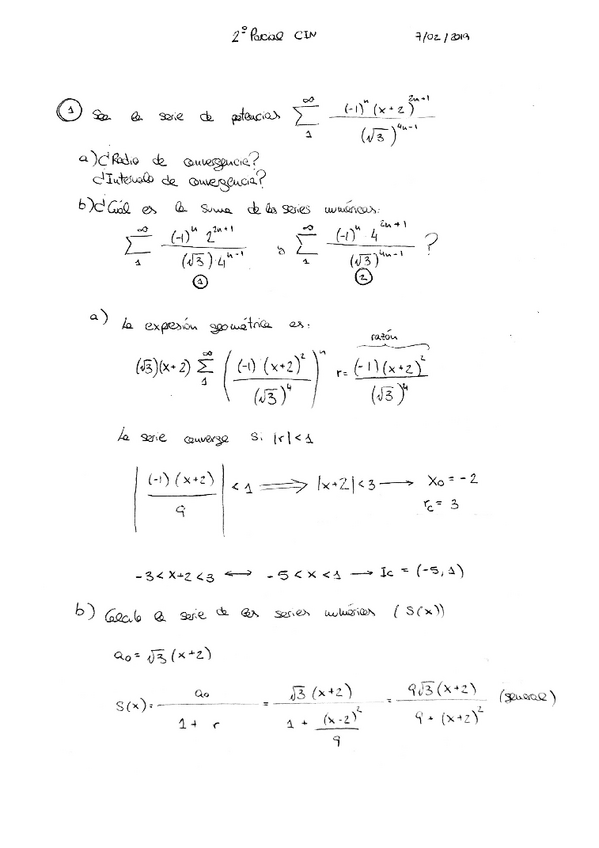 2º Parcial CIN 7/02/2019
① Sea la serie de potencias ∑_{1}^{∞} (-1)^n (x+2)^{2n+1} / (√3)^{4n-1}
a) ¿Radio de convergencia?
¿Intervalo de convergencia?
b) ¿Cuál es la suma de las series numéricas:
∑_{1}^{∞} (-1)^n 2^{2n+1} / (√3)·4^{n-1} y ∑_{1}^{∞} (-1)^n 4^{2n+1} / (√3)^{4n-1} ?
① ②
a) La expresión geométrica es: razón
(√3)(x+2) ∑_{1}^{∞} ( (-1)(x+2)^2 / (√3)^4 )^n r = (-1)(x+2)^2 / (√3)^4
La serie converge si |r|<1
| (-1)(x+2) / 9 | < 1 ⟹ |x+2|<3 ⟶ x₀ = -2
r_c = 3
-3<x+2<3 ⟷ -5<x<1 ⟶ Ic = (-5,1)
b) Calculo la serie de las series numéricas (S(x))
a₀ = √3 (x+2)
S(x) = a₀ / (1 + r) = √3 (x+2) / (1 + (x-2)^2 / 9) = 9√3 (x+2) / (9 + (x+2)^2) (general)